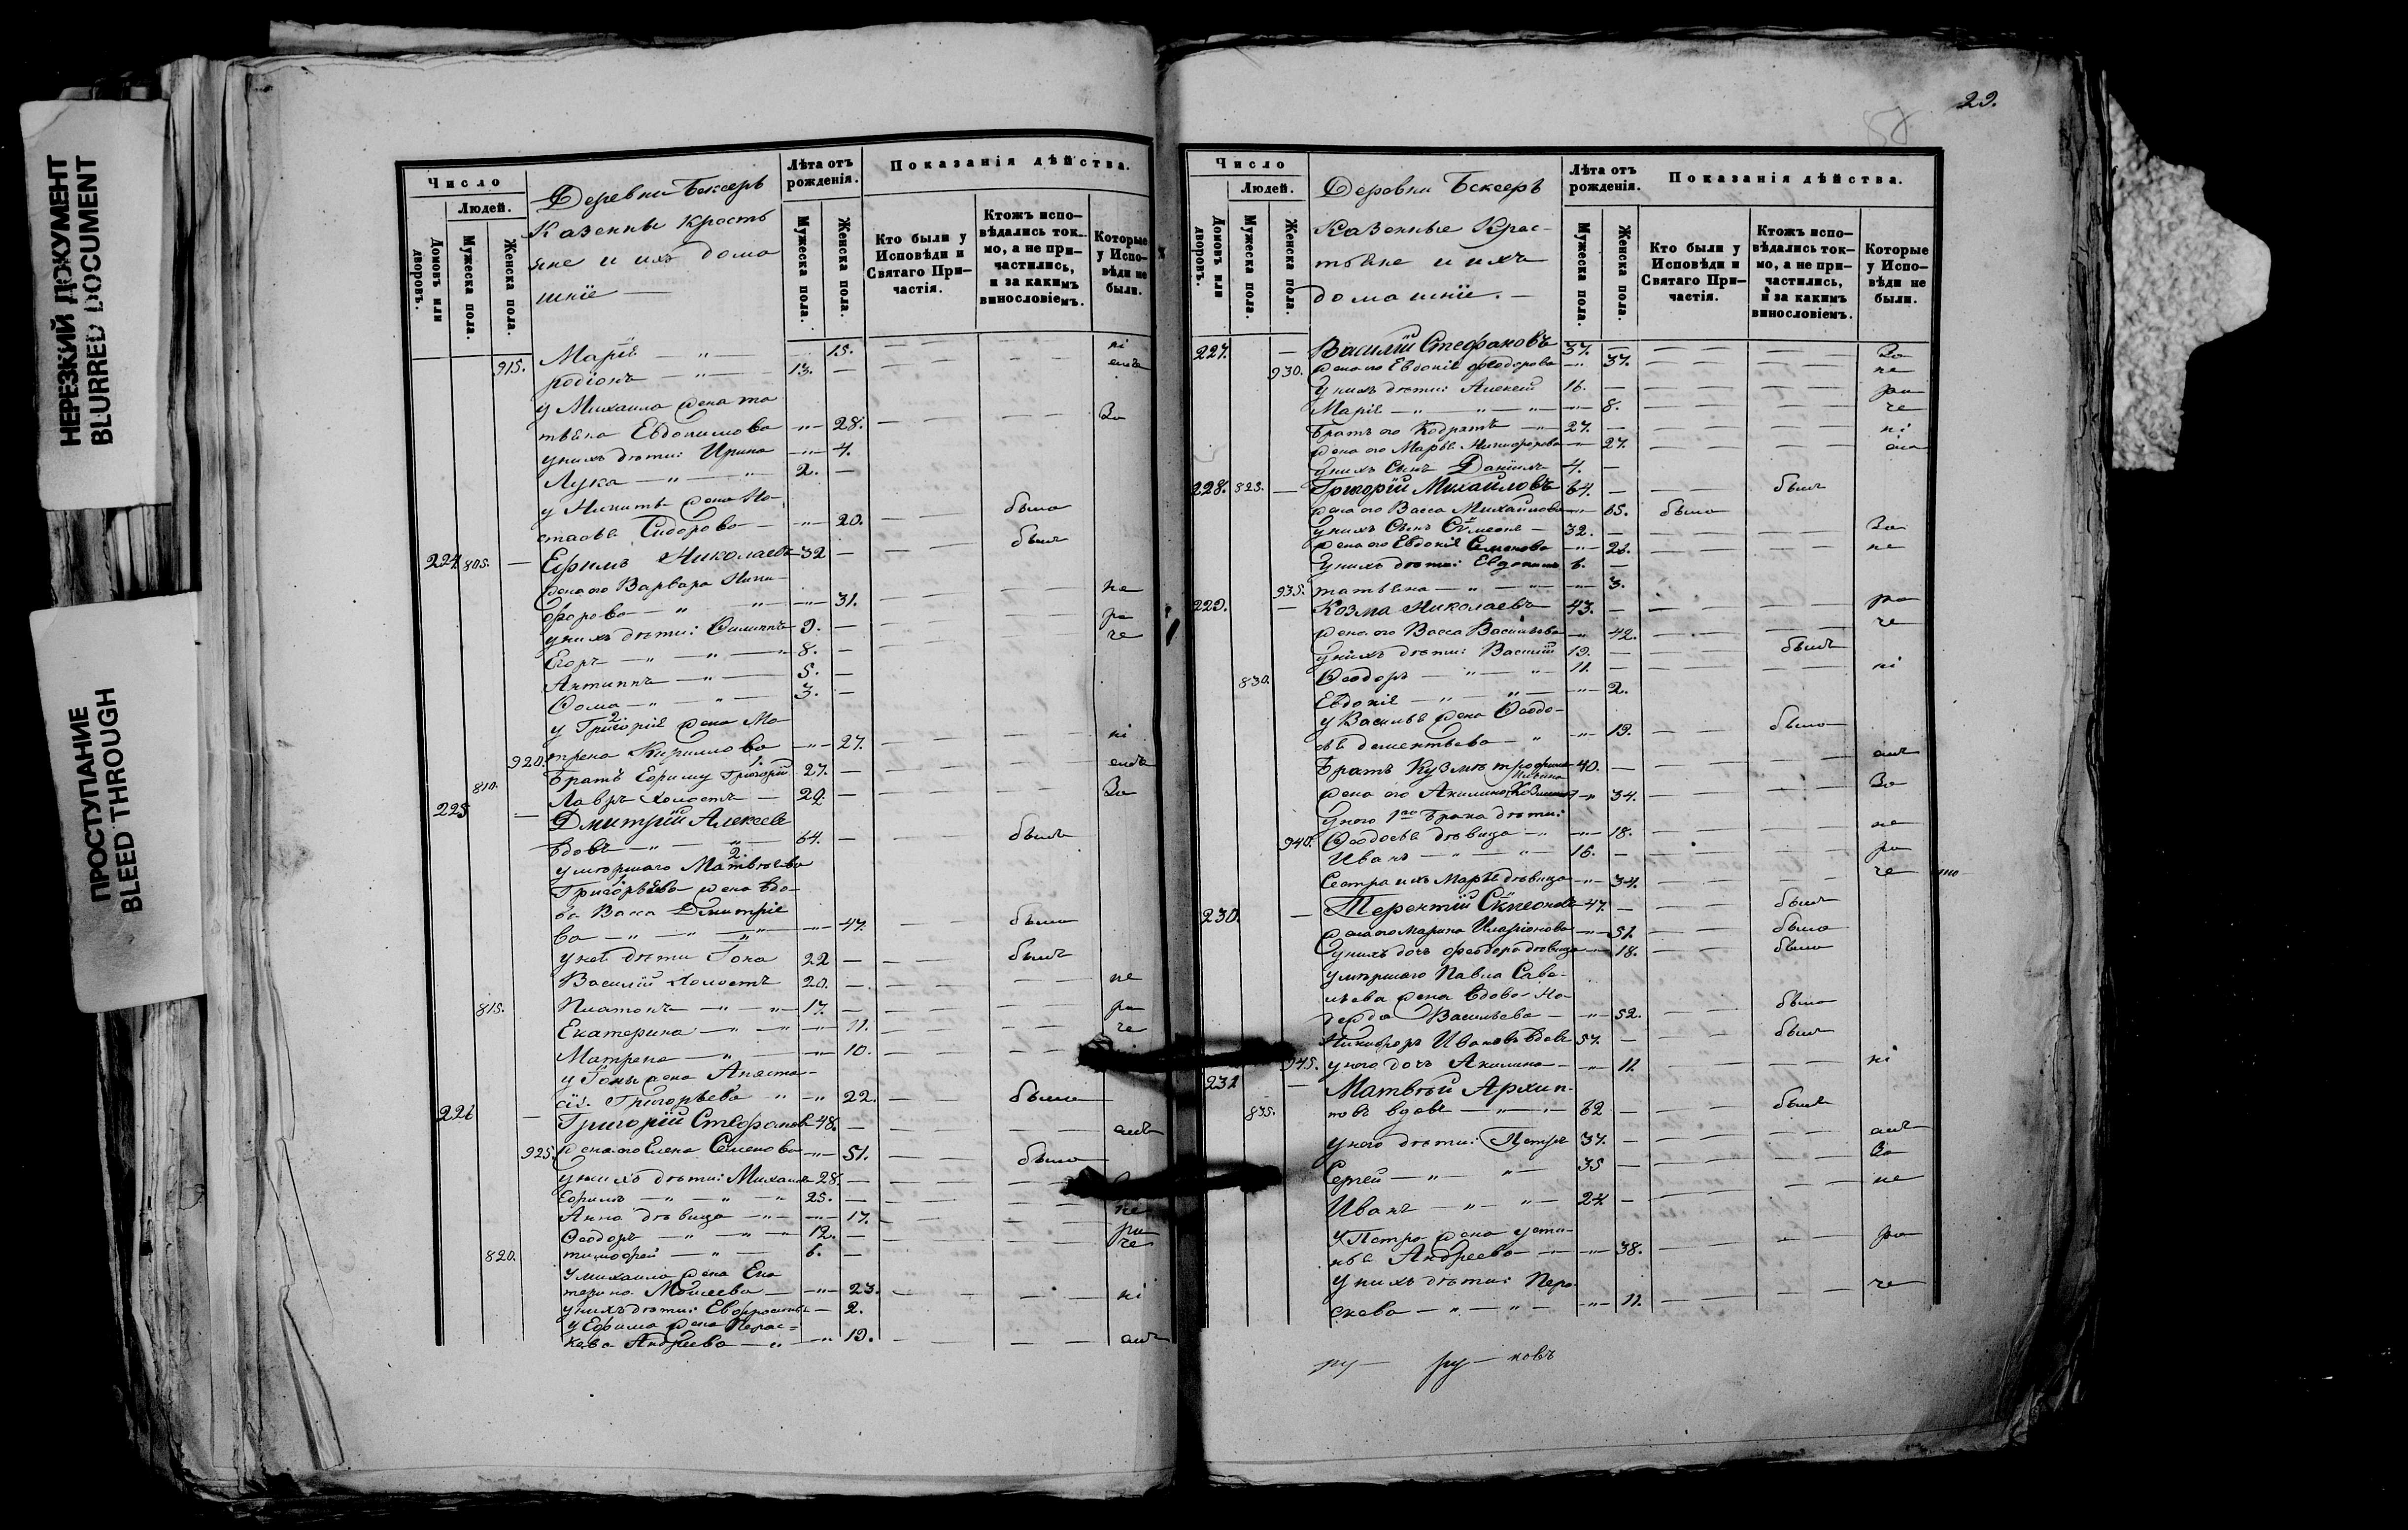 НЕРЕЗКИЙ ДОКУМЕНТ
BLURRED DOCUMENT
ПРОСТУПАНИЕ
BLEED THROUGH
Число
Людей.
Домовъ или дворовъ.
Мужеска пола.
Женска пола.
Деревни Бексеръ
Казенны Кресть
яне и ихъ дома
шніе —
Лѣта отъ рожденія.
Мужеска пола.
Женска пола.
Показанія дѣйства.
Кто были у Исповѣди и Святаго При-частія.
Ктожъ испо-вѣдались ток-мо, а не при-частились, и за какимъ винословіемъ.
Которые у Испо-вѣди не были.
Марія — " — 15. ні
915. родіонъ — " — 13. —
у Михаила жена та
тьяна Евдокимова — " — 28. — За
унихъ дѣти: Ирина — " — 4.
Лука — " — " 2. —
у Никиты жена На-
стасья Сидорова — " — 20. — была
224. 805. — Ефимъ Николаевъ 32 — былъ
жена его Варвара Ники-
форова — " — " — 31. — не
унихъ дѣти: Филиппъ 9. — ра
Егоръ — " — " — 8. — че
Антиппъ — " — 5. —
Фома — " — " — 3. —
у Григорія 2 жена Ма-
920. трена Кириллова — " — 27. — ні
Братъ Ефиму Григорій 27. —
810. Лавръ холостъ — 20. — За
225 — Дмитрій Алексѣе
вдовъ — " — " — 64. — былъ
умершаго Матвѣева
Григорьева жена вдо-
ва Васса Дмитріе
ва — " — " — " — 47. — была
у ней дѣти Іона 22 — былъ
Василій холостъ 20. — не
815. Платонъ — " — " — 17. — ра
Екатерина — " — " — 11. — че
Матрена — " — " — 10. —
у Іоны жена Анаста-
сія Григорьева " — " 22. — была
226 — Григорій Стефановъ 48. —
925. жена его Елена Семенова — " — 51. — была
унихъ дѣти: Михаилъ 28. —
Ефимъ — " — " — " 25. —
Анна дѣвица — " — " — 17. — не
Феодоръ — " — " — " 12. — ра
820. тимофей — " — 6. — че
у михаила жена Ека
терина Моисеева — " — 23. — ні
унихъ дѣти: Евфросинья — 2.
у Ефима жена Парас=
кева Андреева — " — " 19. —
29.
58
Число
Людей.
Домовъ или дворовъ.
Мужеска пола.
Женска пола.
Деревни Бексеръ
Казенные Крес-
тьяне и ихъ
домашніе. —
Лѣта отъ рожденія.
Мужеска пола.
Женска пола.
Показанія дѣйства.
Кто были у Исповѣди и Святаго При-частія.
Ктожъ испо-вѣдались ток-мо, а не при-частились, и за какимъ винословіемъ.
Которые у Испо-вѣди не были.
227. — Василій Стефановъ 37. — За
930. жена его Евдокія Феодорова — " 37. — не
унихъ дѣти: Алексей 16. — ра
Марія — " — " — " — 8. — че
Братъ его Кодратъ — " 27. — ні
жена его Марья Никифорова — " 27. —
унихъ Сынъ Даніилъ 4. —
228. 825. — Григорій Михайловъ 64. — былъ
жена его Васса Михайлова — " 65. была
унихъ Сынъ Симеонъ — 32. — За
жена его Евдокія Семенова — " — 26. — не
унихъ дѣти: Евдокимъ 6. —
935. татьяна — " — " — " — 3.
229. — Козма Николаевъ 43. — ра
жена его Васса Васильева — " 42. — че
унихъ дѣти: Василій 19. — былъ
830. Феодоръ — " — " — 11. — ні
Евдокія — " — " — " — 2.
у Василья жена Феодо-
сья дементьева — " — " — 19. — была
Братъ Кузмѣ трофимъ 40. —
жена его Акилина — " — 34. — За
у него 1го брака дѣти:
940. Феодосья дѣвица — " — " — 18. — не
Иванъ — " — " — 16. — ра
Сестра ихъ Марья дѣвица — " — 34. — че
230. — Терентій Симеоновъ 47. — былъ
жена его Марина Иларіонова — " — 51. — была
унихъ дочь Феодора дѣвица — " — 18. — была
умершаго Павла Саве-
льева жена вдова На-
дежда Васильева — " — 52. — была
Никифоръ Ивановъ вдовъ 57. — былъ
945. у него дочь Акилина — " — 11. — ні
231 — Матвѣй Архип-
835. повъ вдовъ — " — 62 — былъ
у него дѣти: Петръ 37. —
Сергей — " — " — 35 — За
Иванъ — " — " — 24 — не
у Петра жена усти-
нья Андреева — " — 38. — ра
у нихъ дѣти: Пара-
скева — " — " — " — 11. — че